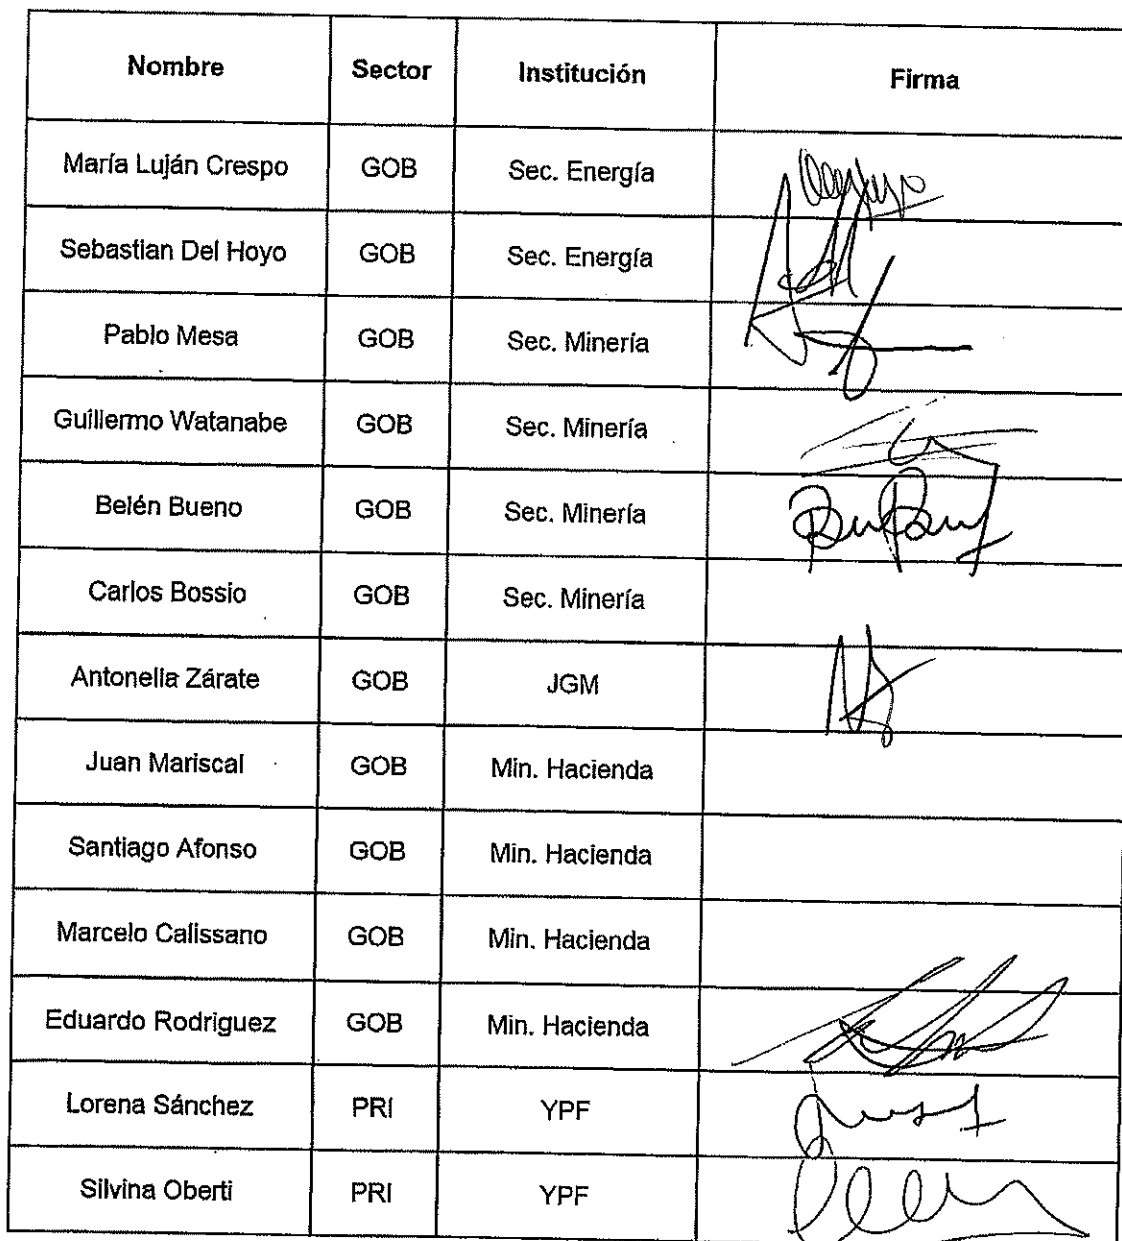 Nombre Sector Institución Firma
María Luján Crespo GOB Sec. Energía
Sebastian Del Hoyo GOB Sec. Energía
Pablo Mesa GOB Sec. Minería
Guillermo Watanabe GOB Sec. Minería
Belén Bueno GOB Sec. Minería
Carlos Bossio GOB Sec. Minería
Antonella Zárate GOB JGM
Juan Mariscal GOB Min. Hacienda
Santiago Afonso GOB Min. Hacienda
Marcelo Calissano GOB Min. Hacienda
Eduardo Rodriguez GOB Min. Hacienda
Lorena Sánchez PRI YPF
Silvina Oberti PRI YPF